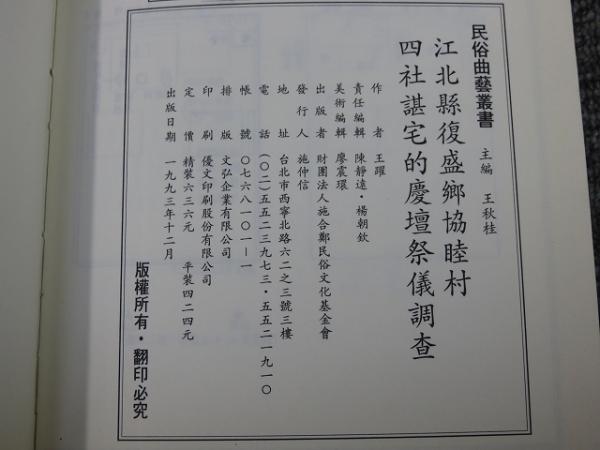 民俗曲藝叢書　主編　王秋桂
江北縣復盛鄉協睦村
四社諶宅的慶壇祭儀調查
作者　王躍
責任編輯　陳靜遠・楊朝欽
美術編輯　廖震環
出版者　財團法人施合鄭民俗文化基金會
發行人　施仲信
地址　台北市西寧北路六二之三號三樓
電話　（〇二）五五二三九七三・五五二一九一〇
帳號　〇七六八一〇一—一
排版　文弘企業有限公司
印刷　優文印刷股份有限公司
定價　精裝六三六元　平裝四二四元
出版日期　一九九三年十二月
版權所有・翻印必究